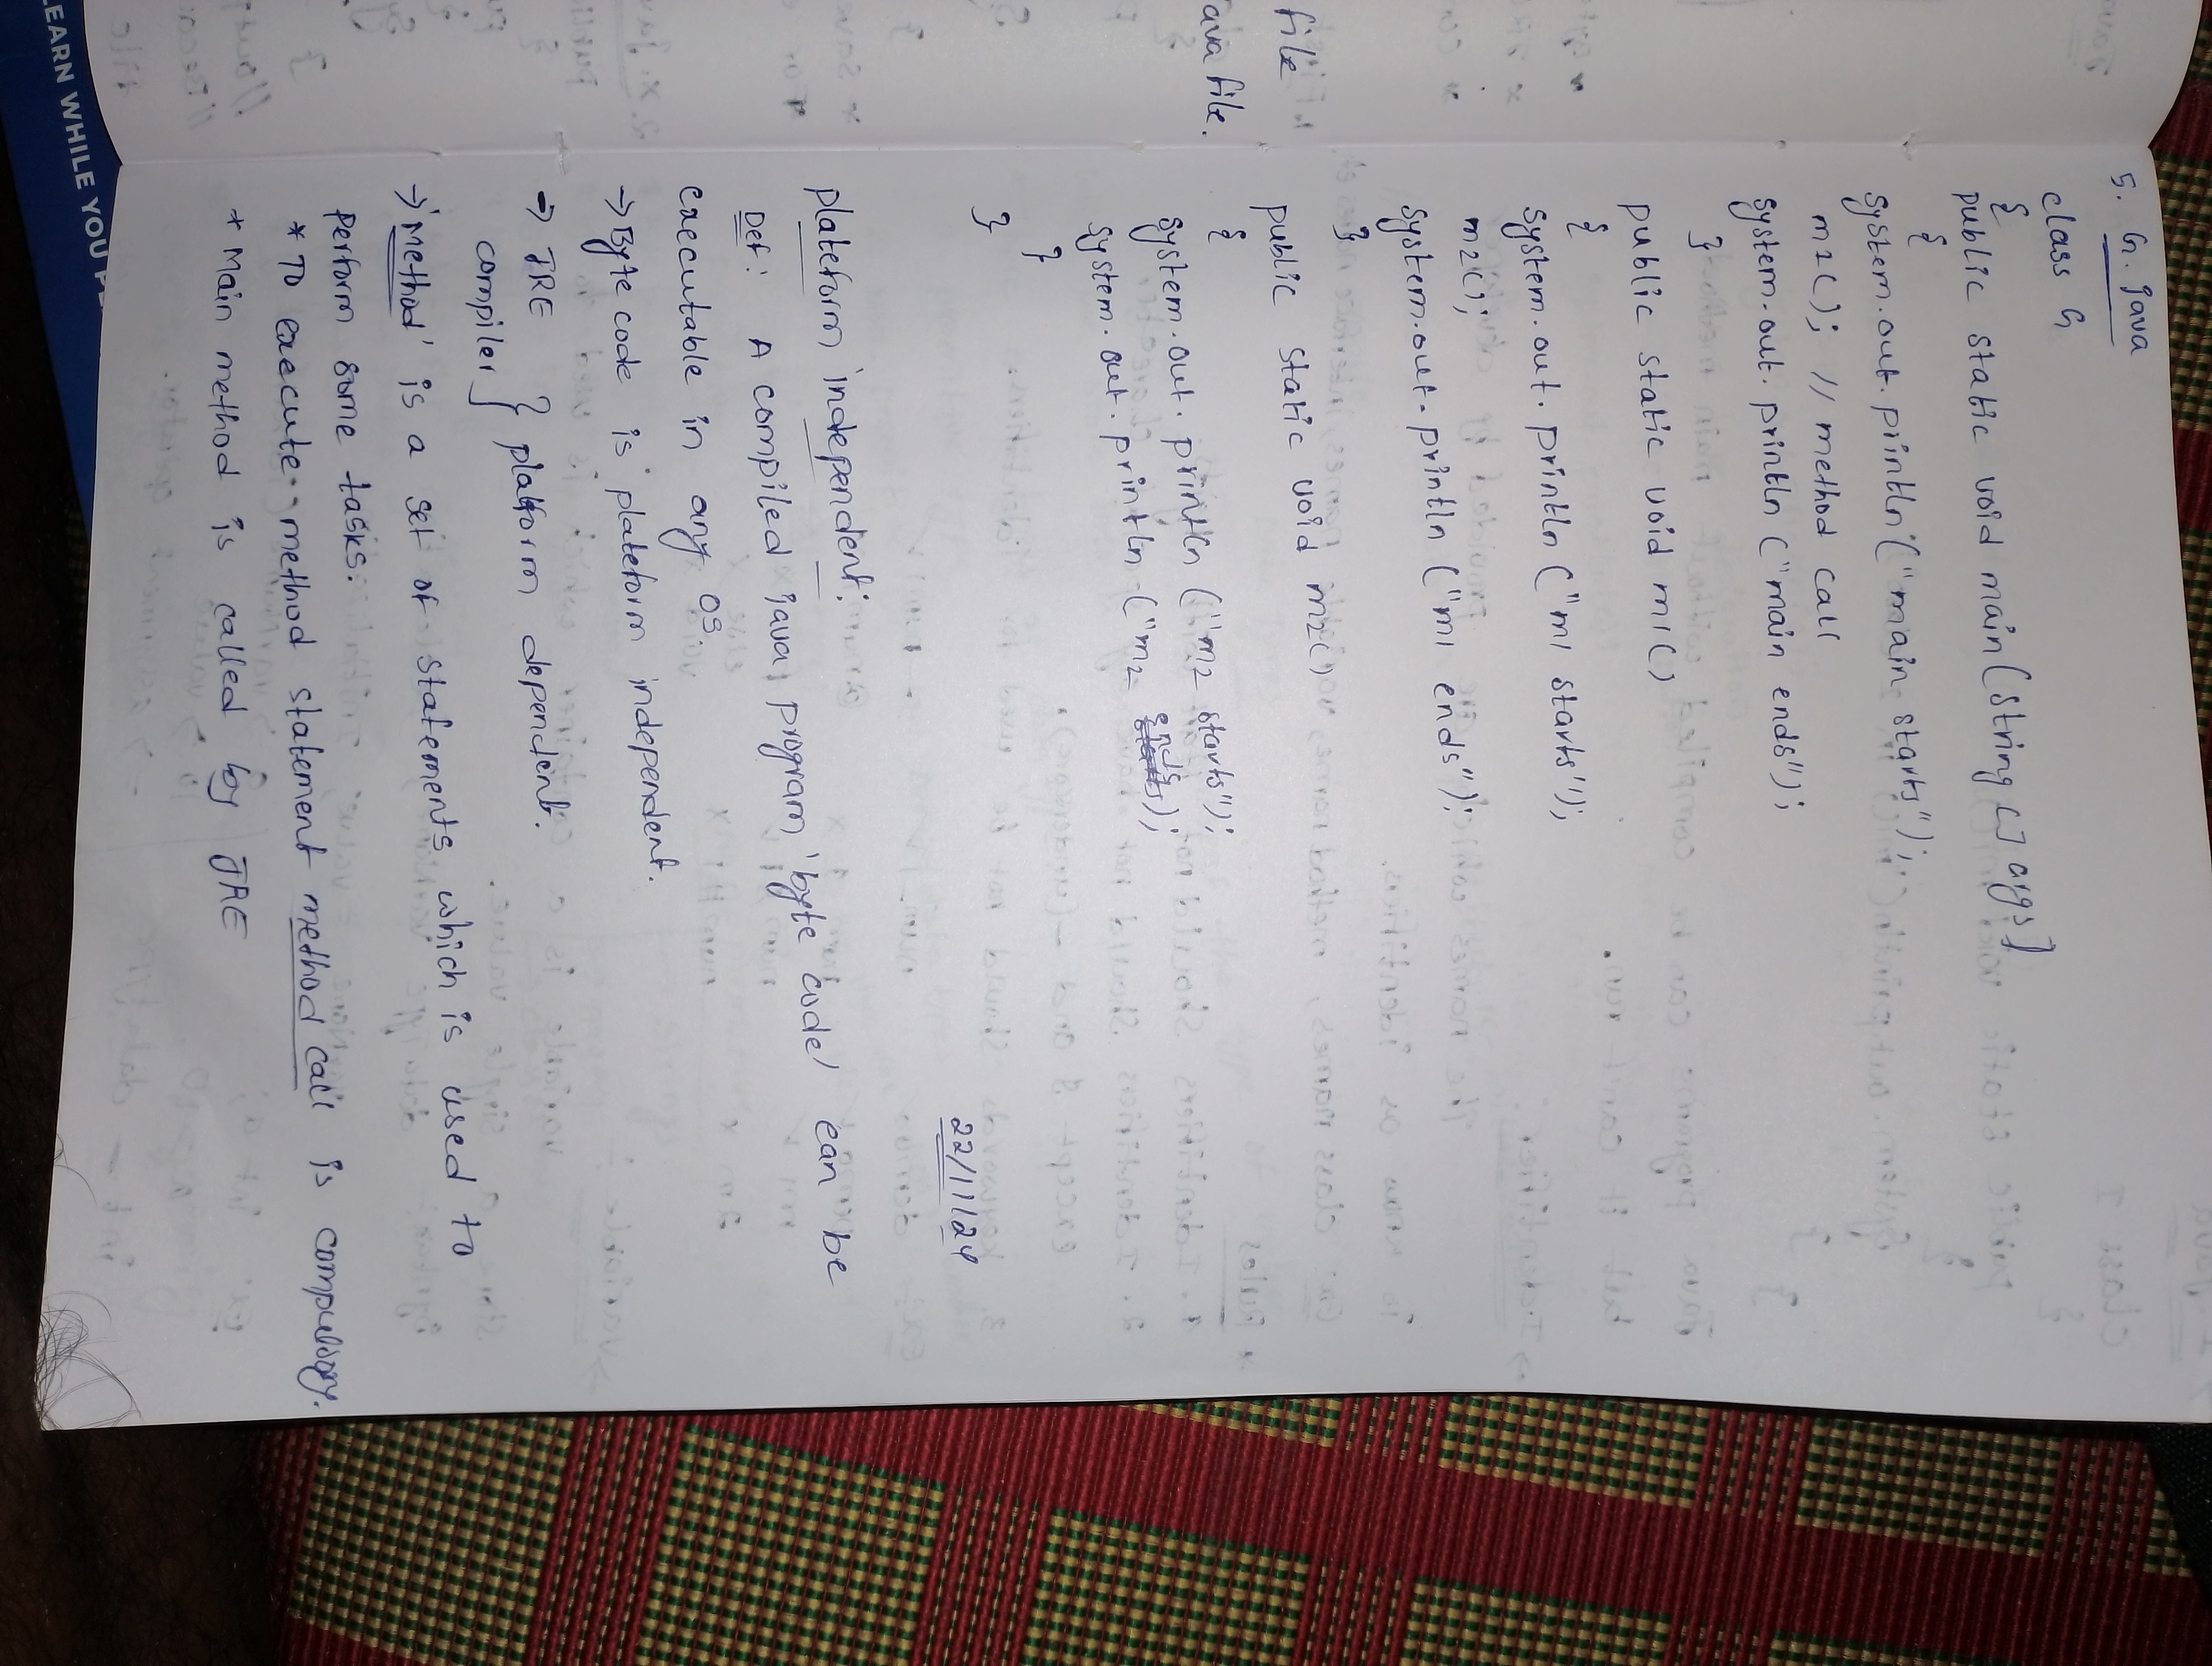 5. G.java
class G
{
public static void main(string [] args)
{
System.out.println("main starts");
m2(); // method call
System.out.println("main ends");
}
public static void m1()
{
System.out.println("m1 starts");
m2();
System.out.println("m1 ends");
}
public static void m2()
{
System.out.println("m2 starts");
System.out.println("m2 ends);
}
}
22/11/24
plateform independent:
Def: A compiled java program 'byte code' can be
executable in any OS.
→ Byte code is plateform independent.
→ JRE
compiler } platform dependent.
→ 'Method' is a set of statements which is used to
perform some tasks.
* To execute method statement method call is compulsory.
* Main method is called by JRE
file
ava file.
LEARN WHILE YOU